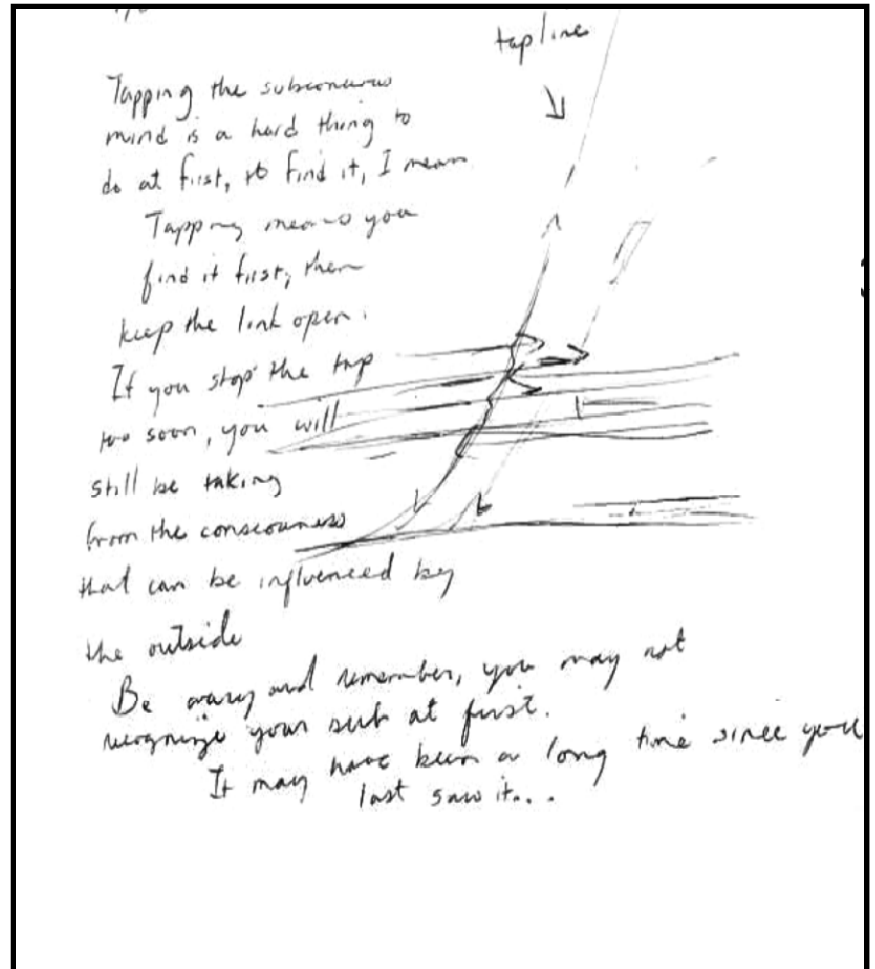 tapline
Tapping the subconcious
mind is a hard thing to
do at first, to find it, I mean
Tapping means you
find it first, then
keep the link open.
If you stop the tap
too soon, you will
still be taking
from the conscouness
that can be influenced by
the outside
Be wary and remember, you may not
recognize your sub at first.
It may have been a long time since you
last saw it...